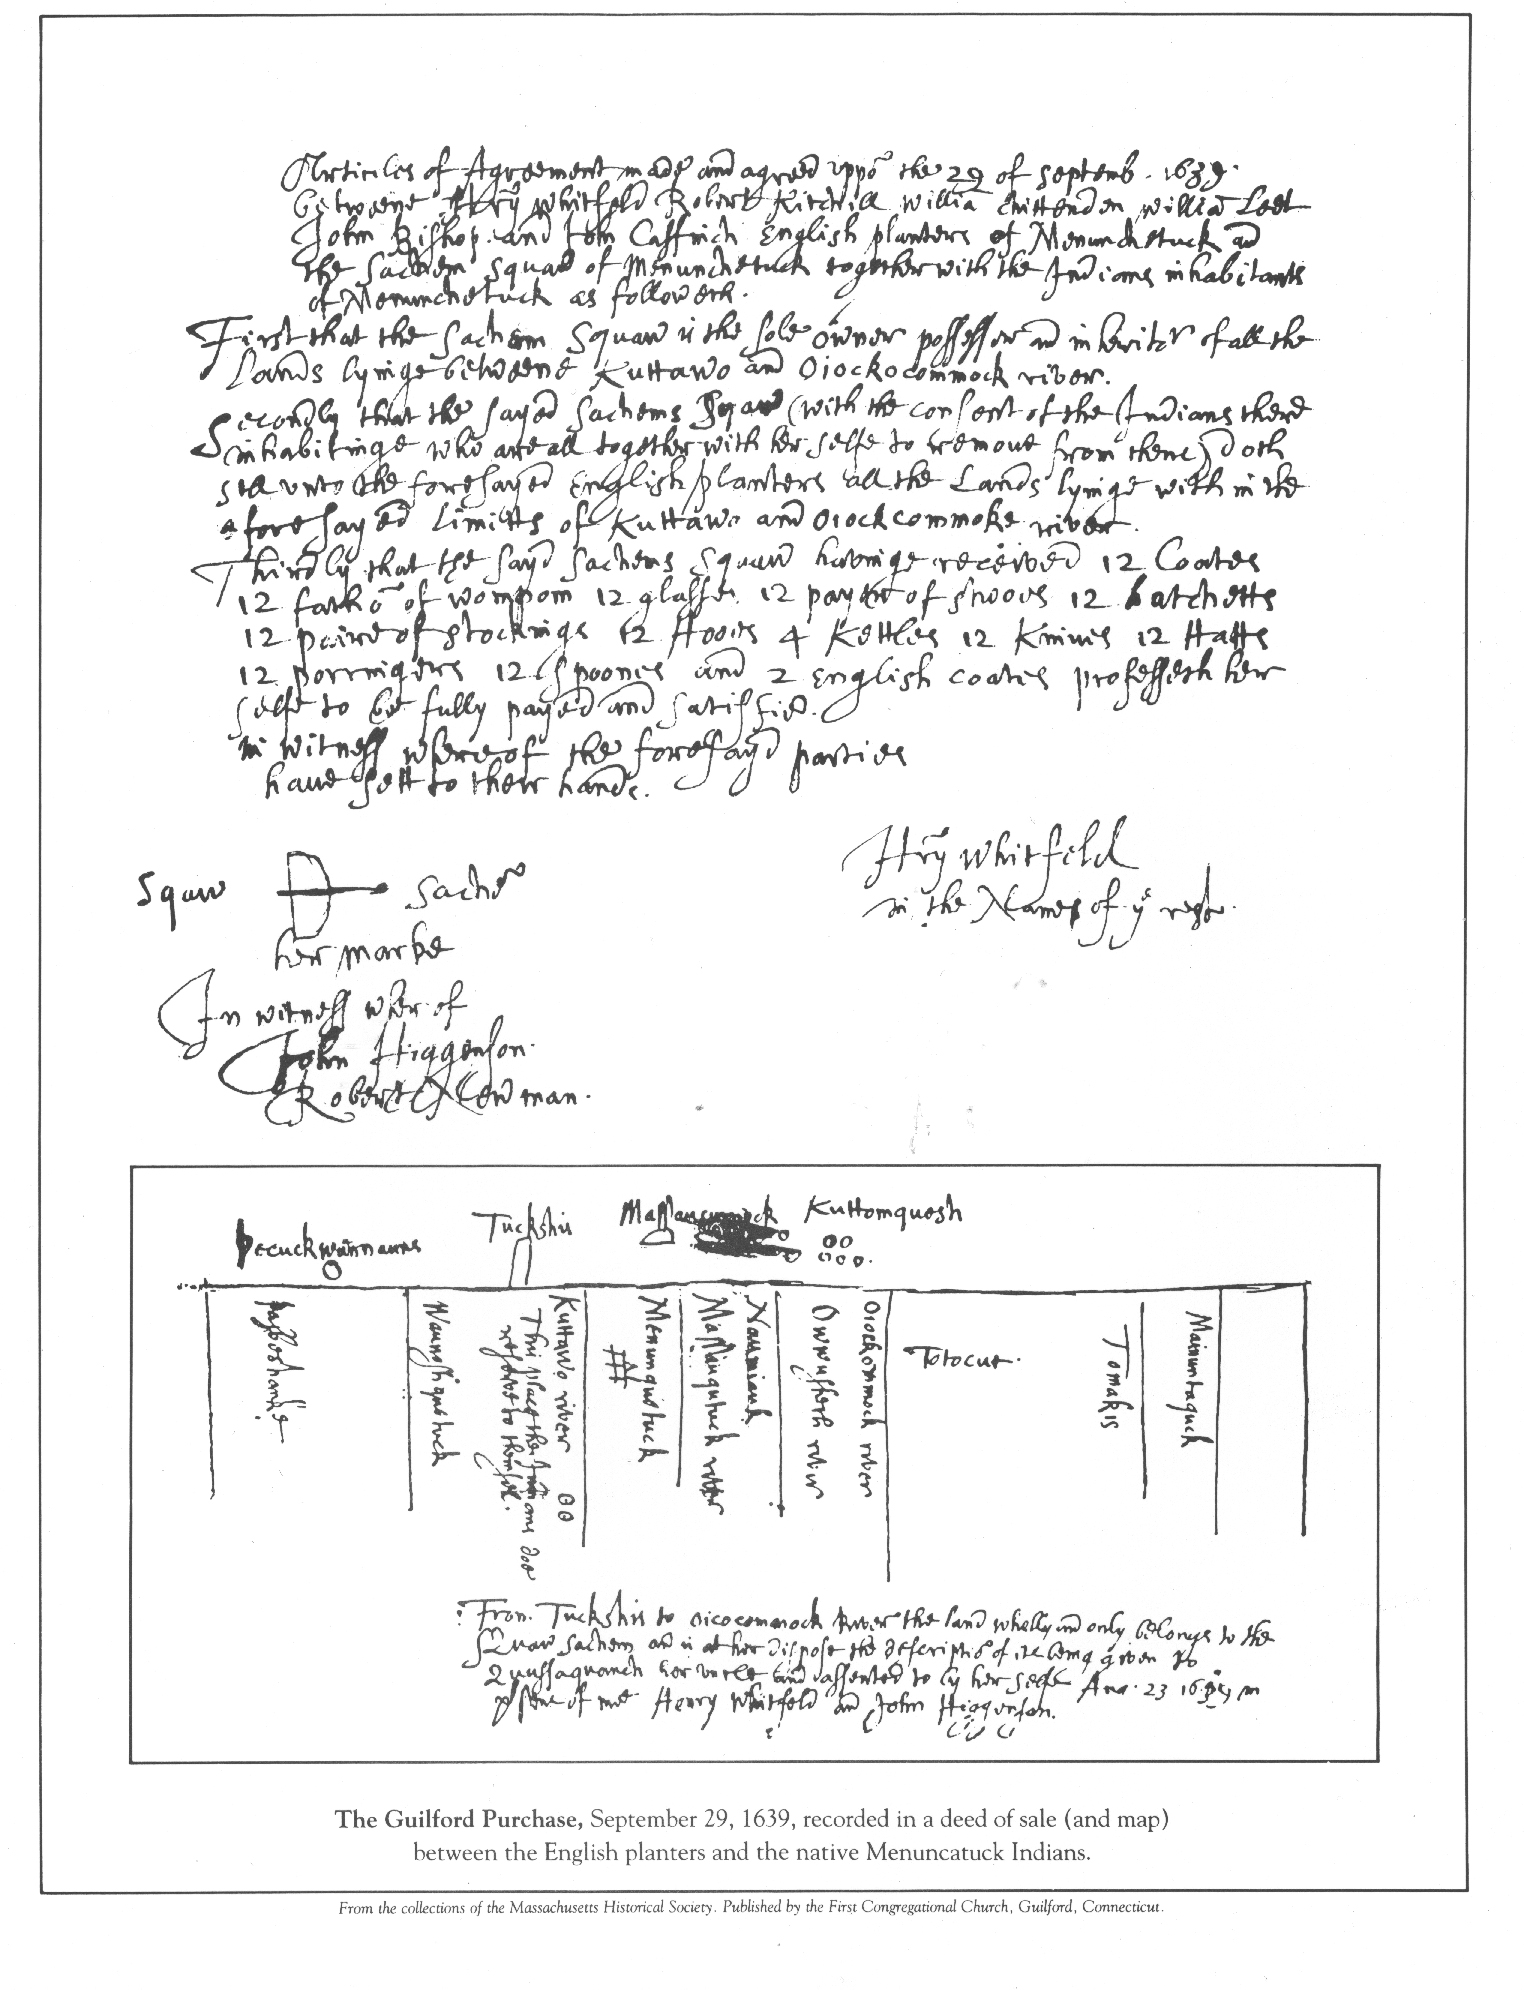 Articles of Agreement made and agreed uppō the 29 of septemb. 1639.
betweene Hēry Whitfeld Robert Kitchill Williā Chittenden williā Leet
John Bishop. and John Caffinch English planters of Menunchetuck and
the Sachem Squaw of Menunchetuck together with the Indians inhabitants
of Menunchetuck as followeth.
First that the Sachem Squaw is the sole owner possessor and inheritor of all the
Lands lyinge betweene Kuttawo and Oiockocommock river.
Secondly that the sayed Sachems Squaw (with the consent of the Indians there
inhabitinge who are all together with her selfe to remove from thence) doth
sell unto the foresayed English planters all the Lands lyinge with in the
aforesayed Limitts of Kuttawo and Oiockcommoke river.
Thirdly that the sayd Sachems Squaw havinge received 12 Coates
12 fathō of wompom 12 glasses 12 payer of shooes 12 hatchetts
12 paire of stockings 12 Hooes 4 Kettles 12 Knives 12 Hatts
12 porringers 12 spoones and 2 English coates professeth her
selfe to be fully payed and satisfied.
in witness whereof the foresayd parties
have sett to their hands.
Hēry Whitfeld
in the Names of yᵉ rest.
Squaw Sachē
her marke
In witness wherof
John Higgenson.
Robert Newman.
Tuckshis
Kuttomquosh
Kuttawo river
This place the Indians doe
reserve to themselves.
Menunqutuck
Massauqutuck river
Oiockommock river
Totocut.
Tomakis
Mainuntaquck
From Tuckshis to oiococommock River the land wholly and only belongs to the
Squaw Sachem and is at her dispose the descriptiō of it being given by
Quassaquanch her uncle and assented to by her selfe Aug. 23 1639 in
pʳsence of mee Henry Whitfeld and John Higgenson.
The Guilford Purchase, September 29, 1639, recorded in a deed of sale (and map)
between the English planters and the native Menuncatuck Indians.
From the collections of the Massachusetts Historical Society. Published by the First Congregational Church, Guilford, Connecticut.